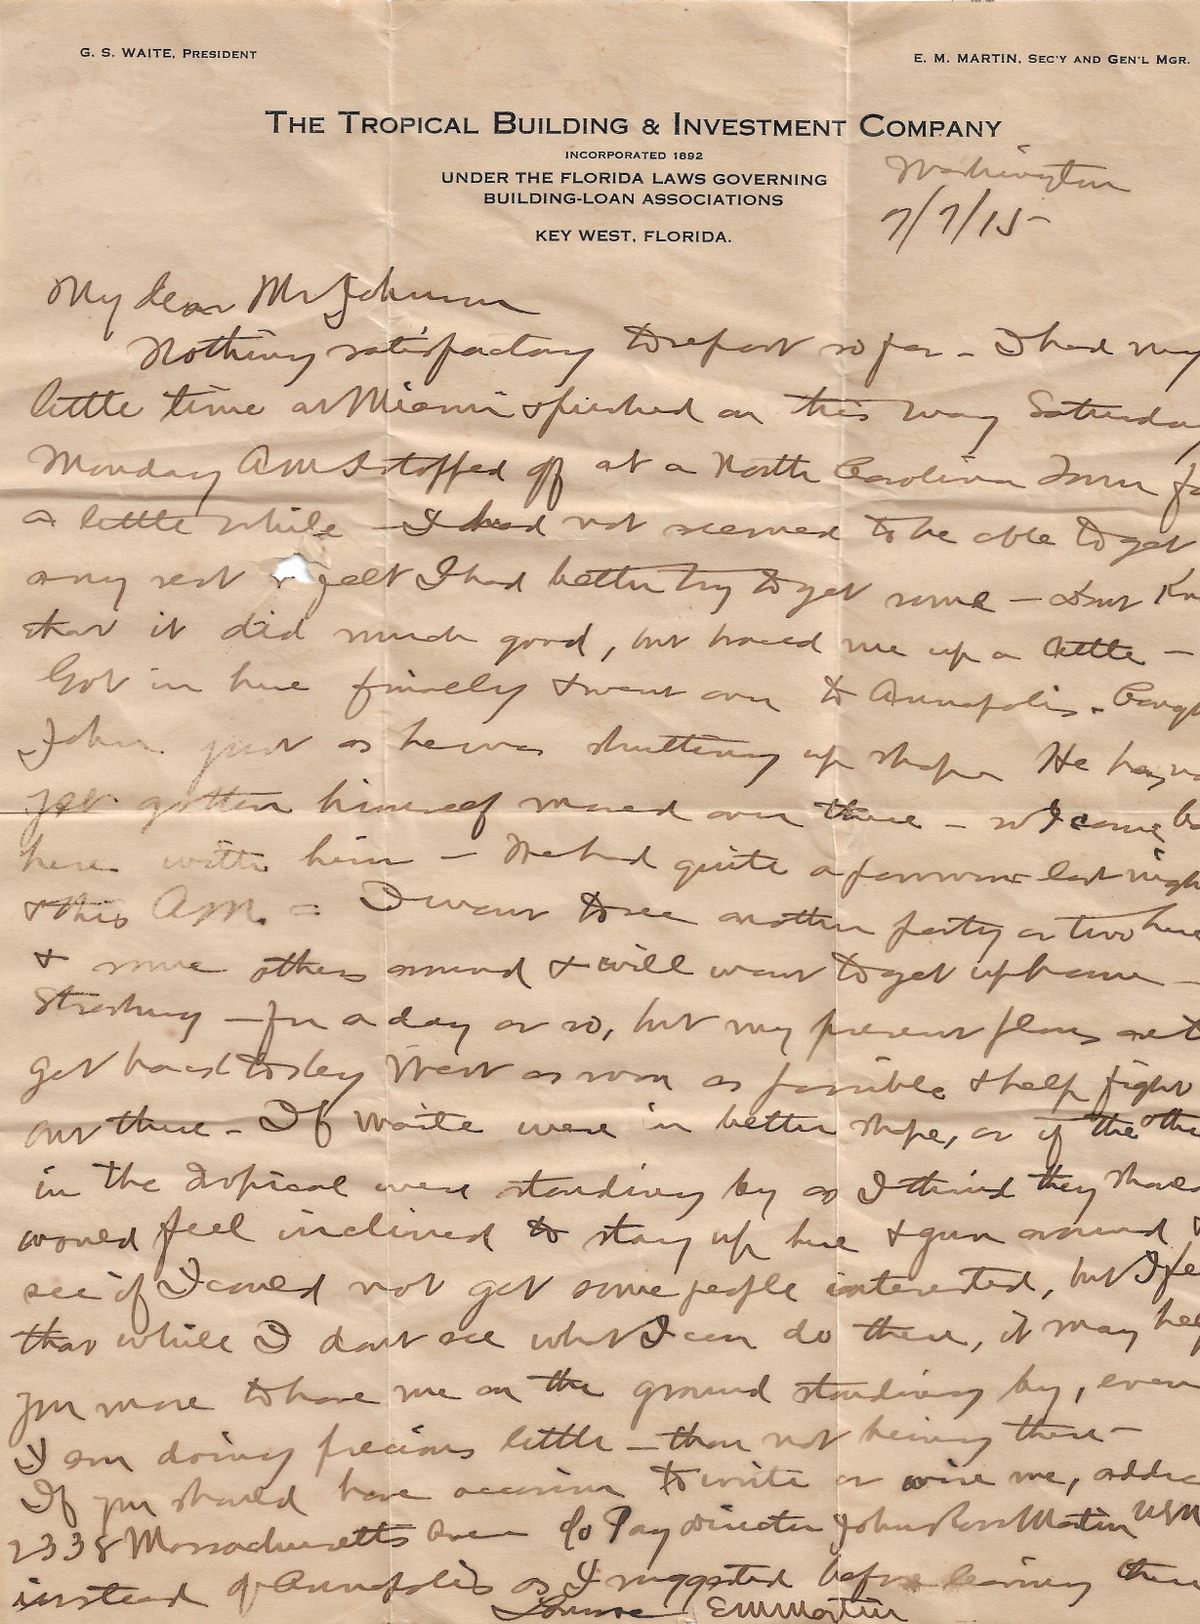 G. S. WAITE, PRESIDENT
E. M. MARTIN, SEC'Y AND GEN'L MGR.
THE TROPICAL BUILDING & INVESTMENT COMPANY
INCORPORATED 1892
UNDER THE FLORIDA LAWS GOVERNING
BUILDING-LOAN ASSOCIATIONS
KEY WEST, FLORIDA.
Washington
7/7/15-
My dear Mr Johnson
Nothing satisfactory to report so far - I had my
little time at Miami & pushed on this way Saturday
Monday AM I stopped off at a North Carolina Town fo
a little while - I had not seemed to be able to get
any rest & felt I had better try to get some - dont Kn
that it did much good, but braced me up a little -
Got in here finally & went over to Annapolis. Caugh
John just as he was shutting up shop. He has no
yet gotten himself moved over there - so I came ba
here with him - We had quite a powwow last nigh
& this AM. = I want to see another party or two here
& some others around & will want to get up home -
Strasburg - for a day or so, but my present plans are t
get back to Key West as soon as possible & help fight
out there - If Waite were in better shape, or if the othe
in the Tropical were standing by as I think they shoul
would feel inclined to stay up here & gun around &
see if I could not get some people interested, but I fe
that while I dont see what I can do there, it may hel
you more to have me on the ground standing by, even
I am doing precious little - than not being there -
If you should have occasion to write or wire me, addre
2338 Massachusetts Aven c/o Pay Director John Ross Martin USN
instead of Annapolis as I suggested before leaving there
EM Martin